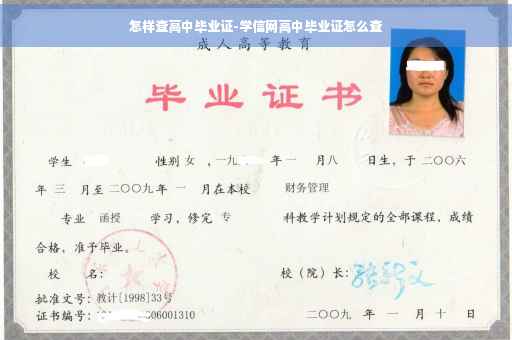 怎样查高中毕业证-学信网高中毕业证怎么查
成人高等教育
毕业证书
学生 性别 女 ,一九 年 一 月 八 日生，于 二〇〇六
年 三 月至 二〇〇九 年 一 月在本校 财务管理
专业 函授 学习，修完 专 科教学计划规定的全部课程，成绩
合格，准予毕业。
校 名： 校（院）长：
批准文号：教计[1998]33号
证书编号： 006001310 二〇〇九 年 一 月 十 日